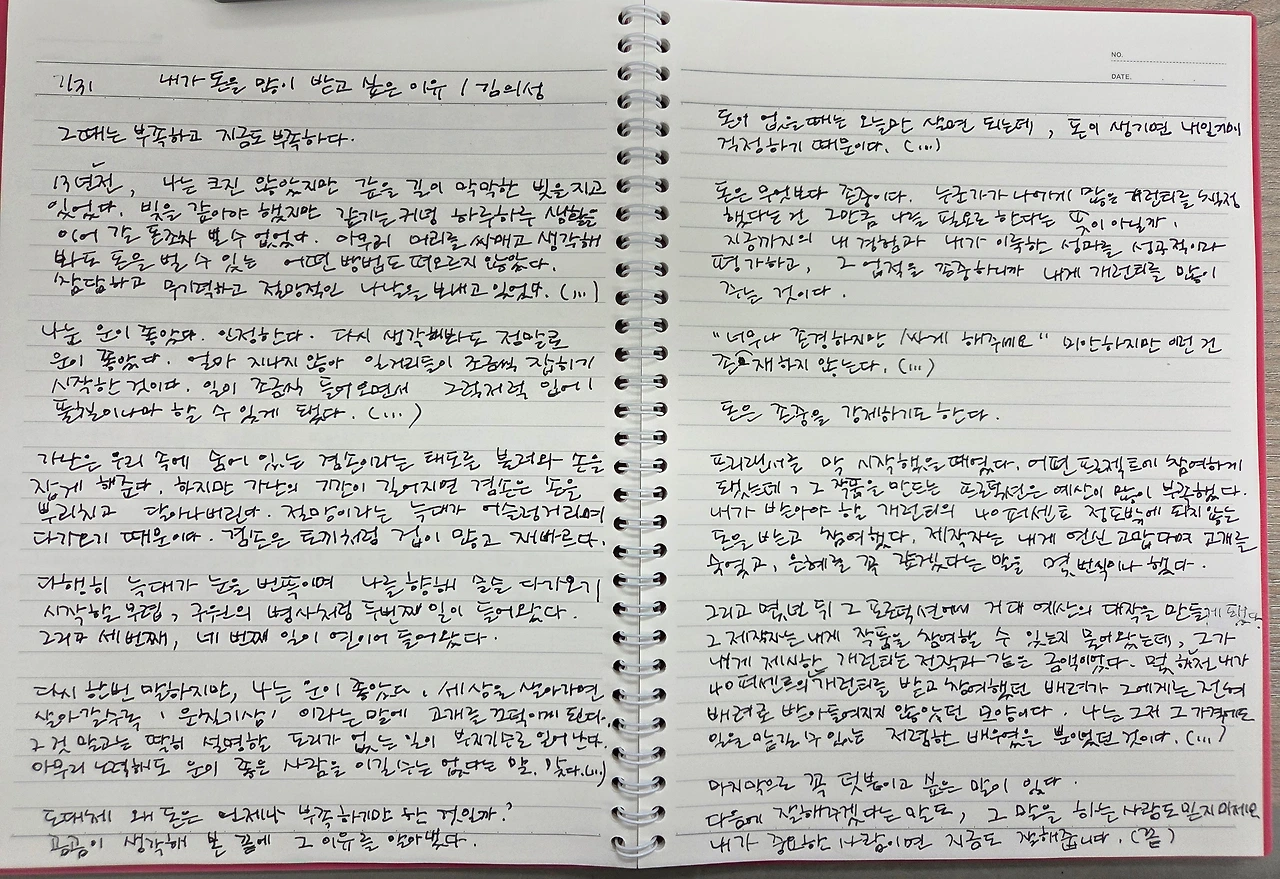 7/31 내가 돈을 많이 받고 싶은 이유 / 김의성
그때는 부족하고 지금도 부족하다.
13년전, 나는 크진 않았지만 갚을 길이 막막한 빚을 지고
있었다. 빚을 갚아야 했지만 갚기는커녕 하루하루 생활을
이어 갈 돈조차 벌 수 없었다. 아무리 머리를 싸매고 생각해
봐도 돈을 벌 수 있는 어떤 방법도 떠오르지 않았다.
참담하고 무기력하고 절망적인 나날을 보내고 있었다. (...)
나는 운이 좋았다. 인정한다. 다시 생각해봐도 정말로
운이 좋았다. 얼마 지나지 않아 일거리들이 조금씩 잡히기
시작한 것이다. 일이 조금씩 들어오면서 그럭저럭 입에
풀칠이나마 할 수 있게 됐다. (...)
가난은 우리 속에 숨어 있는 겸손이라는 태도를 불러와 손을
잡게 해준다. 하지만 가난의 기간이 길어지면 겸손은 손을
뿌리치고 달아나버린다. 절망이라는 늑대가 어슬렁거리며
다가오기 때문이다. 겸손은 토끼처럼 겁이 많고 재빠르다.
다행히 늑대가 눈을 번뜩이며 나를 향해 슬슬 다가오기
시작할 무렵, 구원의 병사처럼 두번째 일이 들어왔다.
그러고 세 번째, 네 번째 일이 연이어 들어왔다.
다시 한번 말하지만, 나는 운이 좋았다. 세상을 살아가면
살아갈수록 '운칠기삼' 이라는 말에 고개를 끄덕이게 된다.
그 것 말고는 딱히 설명할 도리가 없는 일이 부지기수로 일어난다.
아무리 노력해도 운이 좋은 사람을 이길 수는 없다는 말. 맞다.(...)
도대체 왜 돈은 언제나 부족하기만 한 것일까?
곰곰이 생각해 본 끝에 그 이유를 알아냈다.
NO.
DATE.
돈이 없을 때는 오늘만 살면 되는데, 돈이 생기면 내일까지
걱정하기 때문이다. (...)
돈은 무엇보다 존중이다. 누군가가 나에게 많은 개런티를 책정
했다는 건 그만큼 나를 필요로 한다는 뜻이 아닐까.
지금까지의 내 경험과 내가 이룩한 성과를 성공적이라
평가하고, 그 업적을 존중하니까 내게 개런티를 많이
주는 것이다.
"너무나 존경하지만 싸게 해주세요" 미안하지만 이런 건
존재하지 않는다. (...)
돈은 존중을 강제하기도 한다.
프리랜서를 막 시작했을 때였다. 어떤 프로젝트에 참여하게
됐는데, 그 작품을 만드는 프로덕션은 예산이 많이 부족했다.
내가 받아야 할 개런티의 40퍼센트 정도밖에 되지 않는
돈을 받고 참여했다. 제작자는 내게 연신 고맙다며 고개를
숙였고, 은혜를 꼭 갚겠다는 말을 몇 번씩이나 했다.
그리고 몇 년 뒤 그 프로덕션에서 거대 예산의 대작을 만들게 됐다.
그 제작자는 내게 작품을 참여할 수 있는지 물어왔는데, 그가
내게 제시한 개런티는 전작과 같은 금액이었다. 몇 해전 내가
40퍼센트의 개런티를 받고 참여했던 배려가 그에게는 전혀
배려로 받아들여지지 않았던 모양이다. 나는 그저 그 가격에도
일을 맡길 수 있는 저렴한 배우였을 뿐이었던 것이다. (...)
마지막으로 꼭 덧붙이고 싶은 말이 있다.
다음에 잘해주겠다는 말도, 그 말을 하는 사람도 믿지 마세요
내가 중요한 사람이면 지금도 잘해줍니다. (끝)